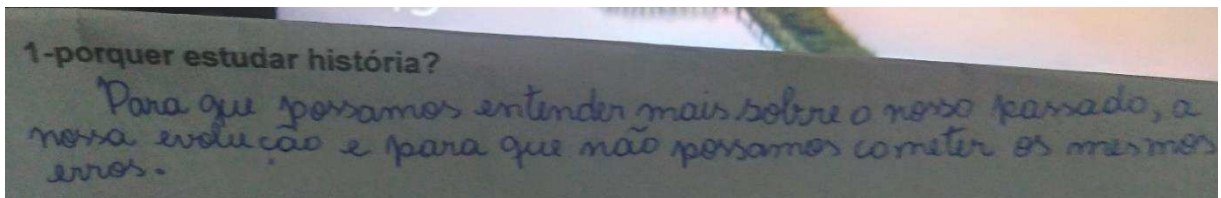 1-porquer estudar história?
Para que possamos entender mais sobre o nosso passado, a
nossa evolução e para que não possamos cometer os mesmos
erros.